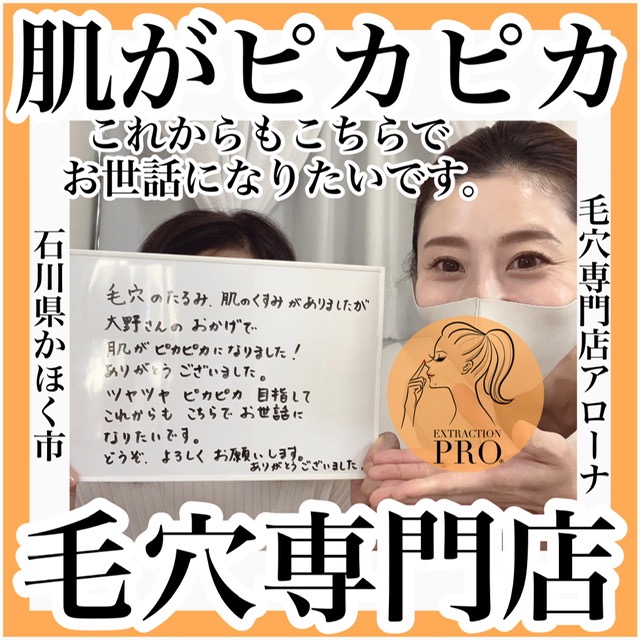 肌がピカピカ
これからもこちらで
お世話になりたいです。
毛穴専門店アローナ
石川県かほく市
毛穴のたるみ、肌のくすみがありましたが
大野さんのおかげで
肌がピカピカになりました!
ありがとうございました。
ツヤツヤ ピカピカ 目指して
これからも こちらでお世話に
なりたいです。
どうぞ、よろしくお願いします。
ありがとうございました。
EXTRACTION
PRO®
毛穴専門店